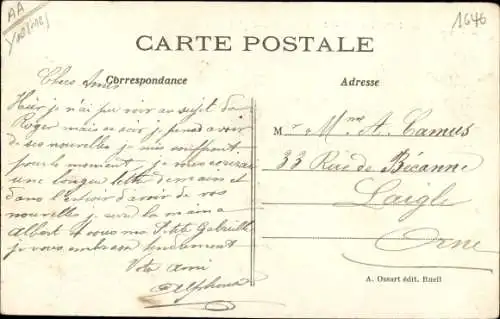 AA
1646
CARTE POSTALE
Correspondance
Adresse
Chers Amis
Hier je n'ai pu voir au sujet de
Roger mais ce soir je pense avoir
de ses nouvelles je suis
pour le moment je vous
une longue lettre demain et
dans l'espoir d'avoir de vos
nouvelles je serre la main a
Albert et vous ma Petite Gabrielle
je vous embrasse tendrement
Votre Ami
Alphonse
M r Mme A. Camus
33 Rue de Bécanne
Laigle
Orne
A. Ossart édit. Rueil